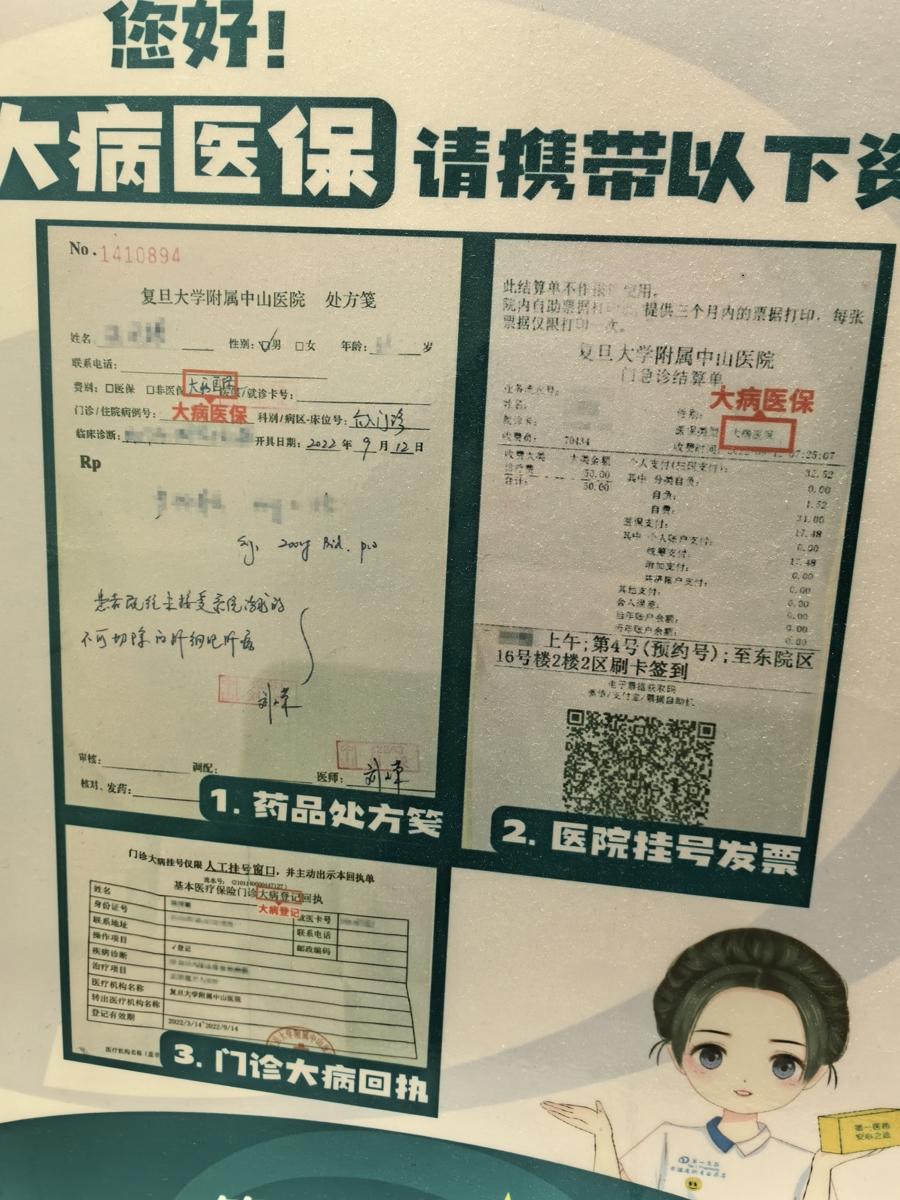 您好!
大病医保 请携带以下资
No. 1410894
复旦大学附属中山医院 处方笺
姓名 性别: 男 女 年龄: 岁
联系电话:
费别: 医保 非医保 大病医保 就诊卡号:
大病医保
门诊/住院病例号: 科别/病区-床位号:
临床诊断: 开具日期: 2022 年 9 月 12 日
Rp
患者既往未接受系统治疗的
不可切除的肝细胞肝癌
审核: 调配: 医师:
核对、发药:
1. 药品处方笺
此结算单不作报销使用,
院内自助票据打印 提供三个月内的票据打印, 每张
票据仅限打印一次。
复旦大学附属中山医院
门急诊结算单
大病医保
业务流水号:
姓名: 性别:
就诊卡: 医保类型: 大病医保
收费员: 70434 收费时间: 07:25:07
收费大类 大类金额 个人支付(扫码支付): 32.52
诊疗费 50.00 其中 分类自负: 0.00
合计: 50.00 自负: 1.52
自费: 31.00
医保支付: 17.48
其中 个人账户支付: 0.00
统筹支付: 17.48
附加支付: 0.00
共济账户支付: 0.00
其他支付: 0.00
舍入误差: 0.00
当年账户余额: 0.00
历年账户余额: 0.00
上午;第4号(预约号);至东院区
16号楼2楼2区刷卡签到
电子票据获取码
微信/支付宝/票据自助机
2. 医院挂号发票
门诊大病挂号仅限 人工挂号窗口, 并主动出示本回执单
基本医疗保险门诊大病登记回执
大病登记
姓名
身份证号 就医卡号
联系地址 联系电话
操作项目 √登记 邮政编码
疾病诊断
治疗项目
医疗机构名称 复旦大学附属中山医院
转出医疗机构名称
登记有效期 2022/3/14~2022/9/14
3. 门诊大病回执
第一医药
安心之选
第一医药